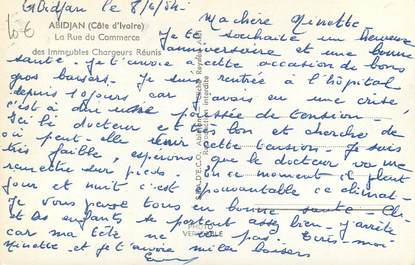 Abidjan le 8/6/54.
10€
ABIDJAN (Côte d'Ivoire)
La Rue du Commerce
des Immeubles Chargeurs Réunis
Ma chère Ginette
Je te souhaite un heureux
anniversaire et une bonne
santé. Je t'envoie à cette occasion de bons
gros baisers. Je suis rentrée à l'hôpital
depuis 10 jours car j'avais eu une crise
c'est à dire une poussée de tension
Ici le docteur est très bon et cherche
où peut-elle venir cette tension. Je suis
très faible, espérons que le docteur va me
remettre sur pieds. En ce moment il pleut
jour et nuit c'est épouvantable ce climat
Je vous savoir tous en bonne santé.
et les enfants se portent assez bien. J'arrête
car ma tête ne va pas. Écris-moi
Ginette et je t'envoie mille baisers
PHOTO
VÉRITABLE
Reproduction interdite